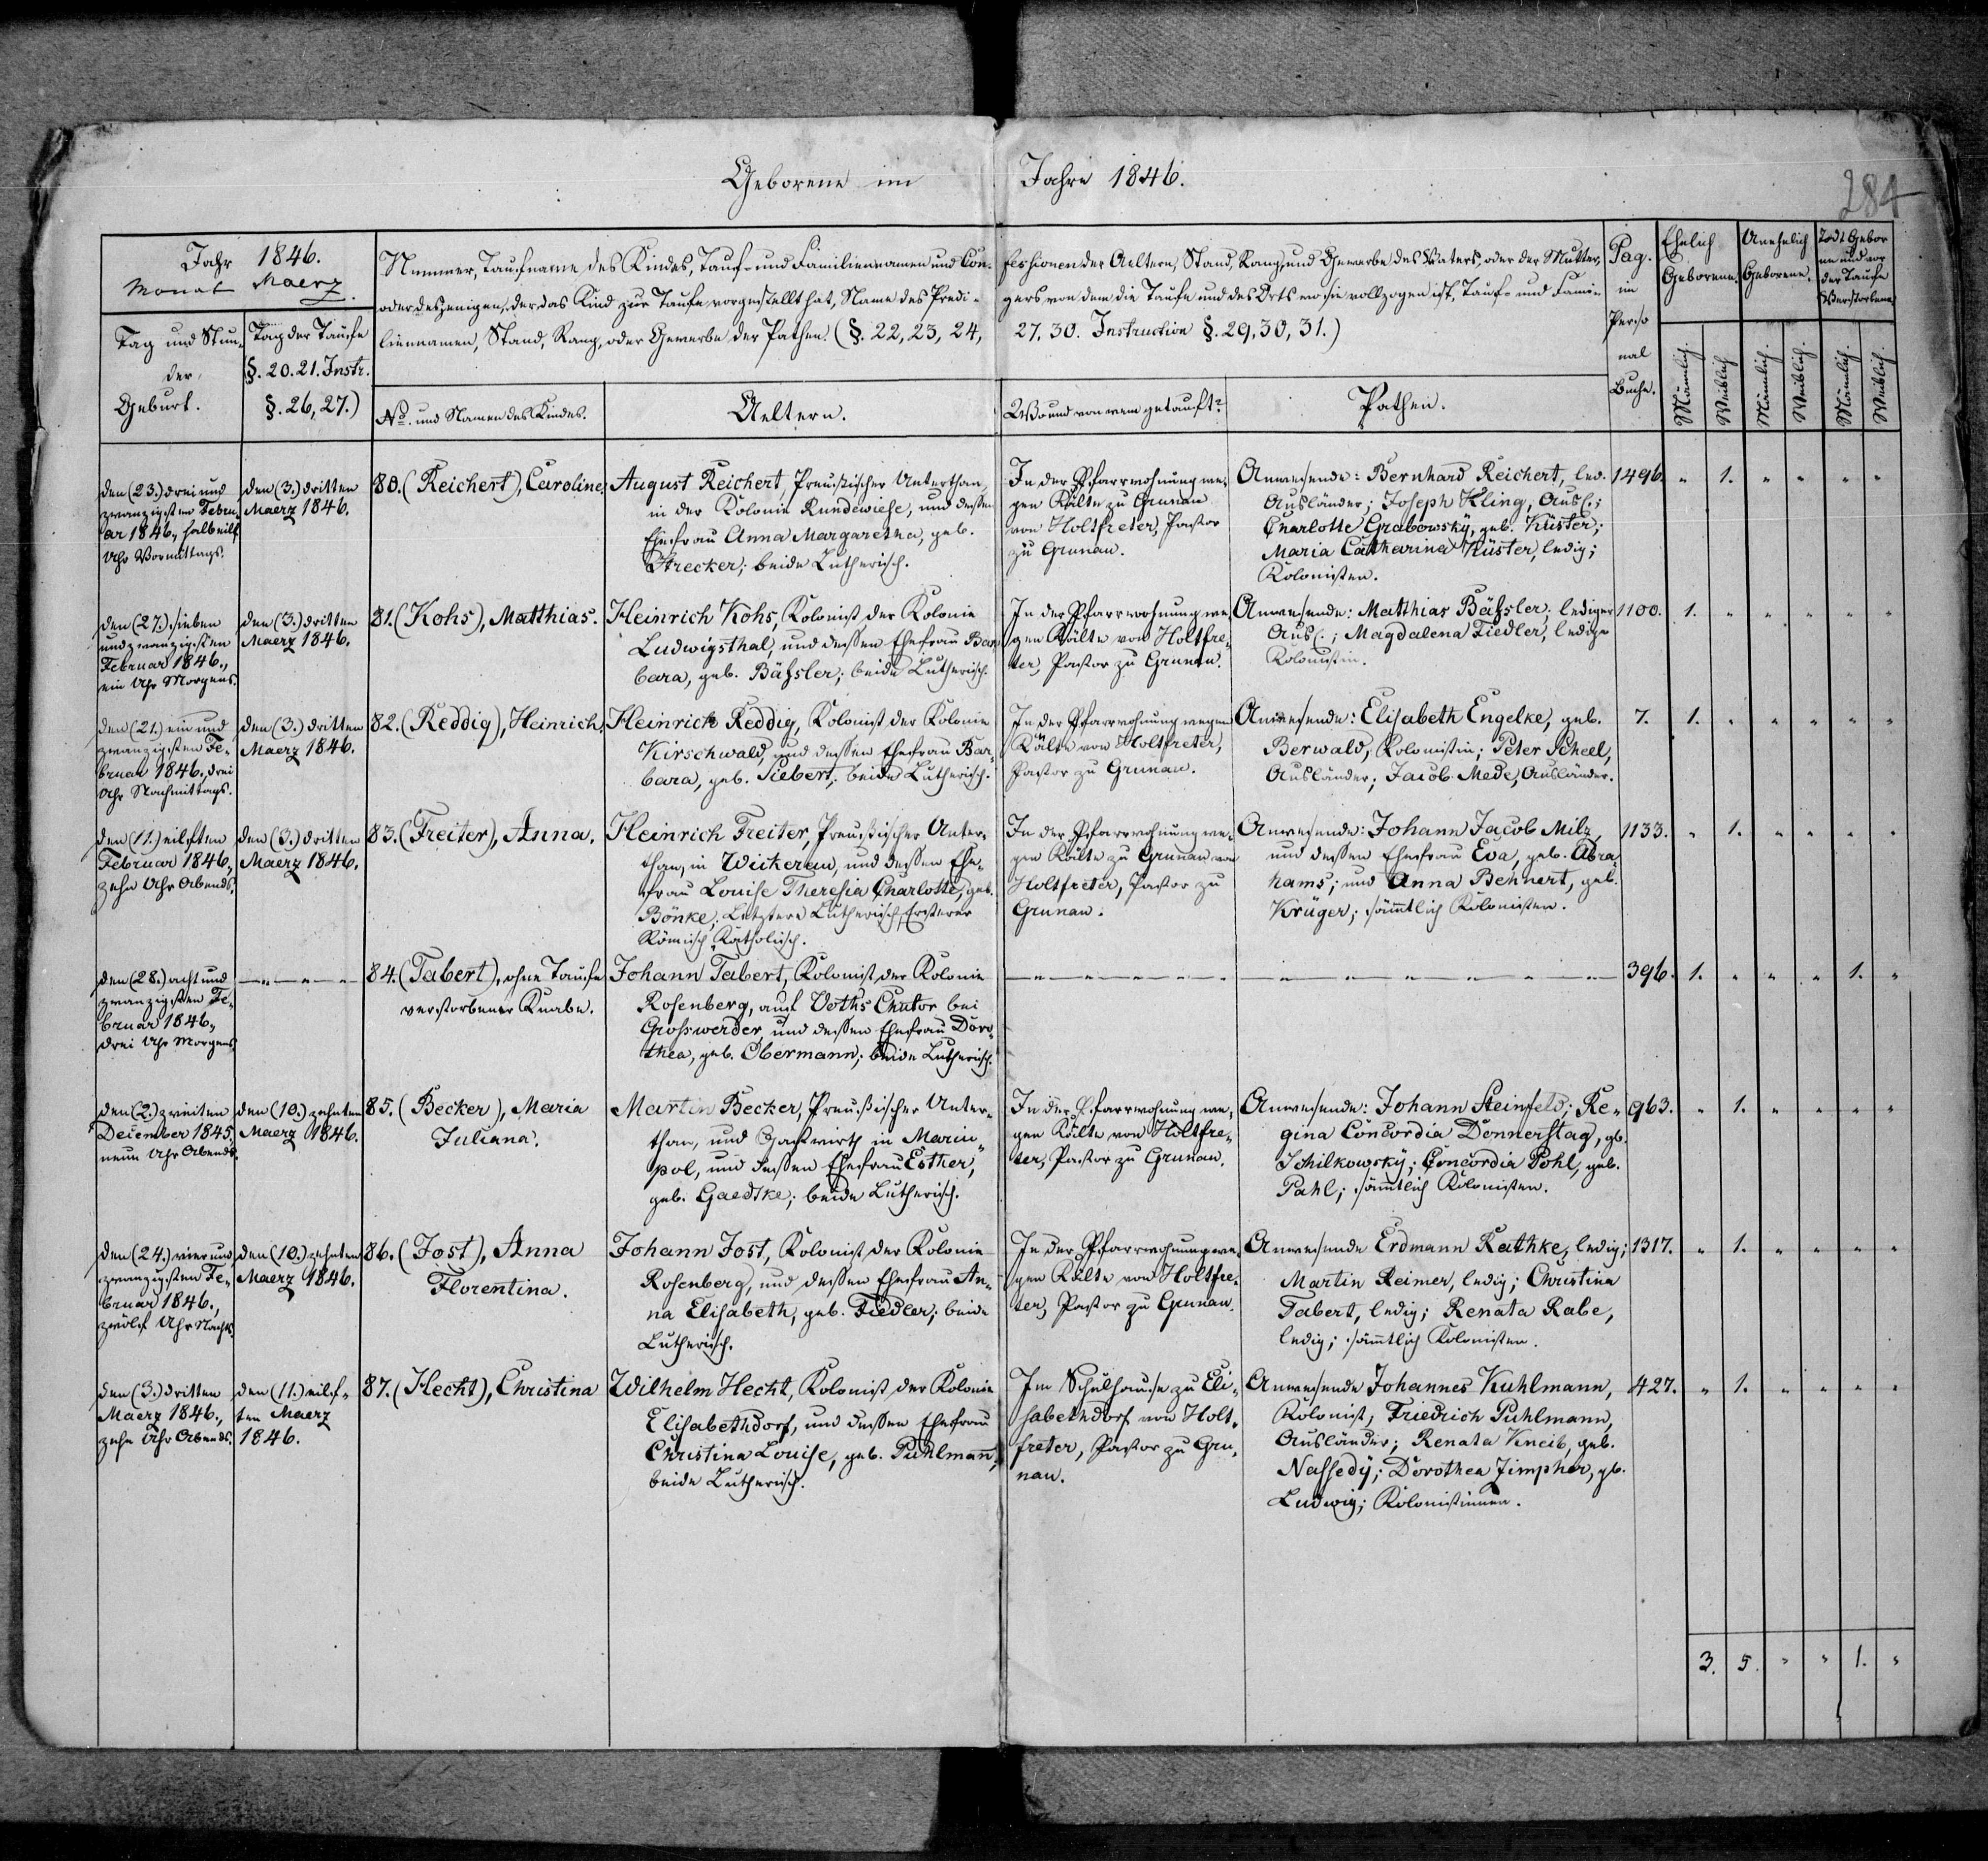 Geborene im Jahre 1846.
284
Jahr 1846.
Monat Maerz.
Tag und Stun-
der
Geburt.
Tag der Taufe
§. 20. 21. Instr.
§. 26, 27.)
Nummer, Taufname des Kindes, Tauf- und Familiennamen und Con-
fessionen der Aeltern, Stand, Rang, und Gewerbe des Vaters, oder der Mutter,
oder desjenigen, der das Kind zur Taufe vorgestellt hat, Name des Predi-
gers von dem die Taufe und des Orts wo sie vollzogen ist, Tauf- und Fami-
liennamen, Stand, Rang, oder Gewerbe der Pathen. (§. 22, 23, 24,
27, 30. Instruction §. 29, 30, 31.)
No. und Namen des Kindes.
Aeltern.
Wo und von wem getauft?
Pathen.
Pag.
im
Perso
nal
Buche.
Ehelich
Geborene.
Unehelich
Geborene.
Todt Gebor
ne und vor
der Taufe
Verstorbene
Männlich.
Weiblich
Männlich.
Weiblich.
Männlich.
Weiblich.
den (23.) drei und
zwanzigsten Febru
ar 1846., halb eilf
Uhr Vormittags.
den (3.) dritten
Maerz 1846.
80. (Reichert), Caroline.
August Reichert, Preußischer Unterthan,
in der Kolonie Rundewiese, und dessen
Ehefrau Anna Margaretha, geb.
Strecker; beide Lutherisch.
In der Pfarrwohnung we-
gen Kälte zu Grunau
von Holtfreter, Pastor
zu Grunau.
Anwesende: Bernhard Reichert, led.
Ausländer; Joseph Kling, Ausl.;
Charlotte Grabowskÿ, geb. Küster;
Maria Catharina Küster, ledig;
Kolonisten.
1496. " 1. " " " "
den (27.) sieben
und zwanzigsten
Februar 1846.,
ein Uhr Morgens.
den (3.) dritten
Maerz 1846.
81. (Kohs), Matthias.
Heinrich Kohs, Kolonist der Kolonie
Ludwigsthal, und dessen Ehefrau Bar-
bara, geb. Bäßler; beide Lutherisch.
In der Pfarrwohnung we-
gen Kälte von Holtfre-
ter, Pastor zu Grunau.
Anwesende: Matthias Bäßler, lediger
Ausl.; Magdalena Fiedler, ledige
Kolonistin.
1100. 1. " " " " "
den (21.) ein und
zwanzigsten Fe-
bruar 1846., drei
Uhr Nachmittags.
den (3.) dritten
Maerz 1846.
82. (Reddig), Heinrich.
Heinrich Reddig, Kolonist der Kolonie
Kirschwald, und dessen Ehefrau Bar-
bara, geb. Siebert; beide Lutherisch.
In der Pfarrwohnung wegen
Kälte von Holtfreter,
Pastor zu Grunau.
Anwesende: Elisabeth Engelke, geb.
Berwald, Kolonistin; Peter Scheel,
Ausländer; Jacob Mede, Ausländer.
7. 1. " " " " "
den (11.) eilften
Februar 1846.,
zehn Uhr Abends.
den (3.) dritten
Maerz 1846.
83. (Freiter), Anna.
Heinrich Freiter, Preußischer Unter-
than, in Wickerau, und dessen Ehe-
frau Louise Theresia Charlotte, geb.
Bönke; Letztere Lutherisch, Ersterer
Römisch Katholisch.
In der Pfarrwohnung we-
gen Kälte zu Grunau von
Holtfreter, Pastor zu
Grunau.
Anwesende: Johann Jacob Milz,
und dessen Ehefrau Eva, geb. Abra-
hams; und Anna Behnert, geb.
Krüger; sämtlich Kolonisten.
1133. " 1. " " " "
den (28.) acht und
zwanzigsten Fe-
bruar 1846.,
drei Uhr Morgens
84. (Tabert), ohne Taufe
verstorbener Knabe.
Johann Tabert, Kolonist der Kolonie
Rosenberg, auf Voths Chutor bei
Grosswerder, und dessen Ehefrau Doro-
thea, geb. Obermann; beide Lutherisch.
396. 1. " " " 1. "
den (2.) zweiten
December 1845.
neun Uhr Abends.
den (10.) zehnten
Maerz 1846.
85. (Becker), Maria
Juliana.
Martin Becker, Preußischer Unter-
than, und Gastwirth in Mariu-
pol, und dessen Ehefrau Esther,
geb. Gaedtke; beide Lutherisch.
In der Pfarrwohnung we-
gen Kälte von Holtfre-
ter, Pastor zu Grunau.
Anwesende: Johann Steinfeld; Re-
gina Concordia Donnerstag, gb.
Schilkowskÿ; Concordia Pohl, geb.
Pahl; sämtlich Kolonisten.
963. " 1. " " " "
den (24.) vier und
zwanzigsten Fe-
bruar 1846.,
zwölf Uhr Nachts.
den (10.) zehnten
Maerz 1846.
86. (Jost), Anna
Florentina.
Johann Jost, Kolonist der Kolonie
Rosenberg, und dessen Ehefrau An-
na Elisabeth, geb. Fiedler; beide
Lutherisch.
In der Pfarrwohnung we-
gen Kälte von Holtfre-
ter, Pastor zu Grunau.
Anwesende Erdmann Rathke, ledig;
Martin Reimer, ledig; Christina
Tabert, ledig; Renata Rabe,
ledig; sämtlich Kolonisten.
1317. " 1. " " " "
den (3.) dritten
Maerz 1846.,
zehn Uhr Abends.
den (11.) eilf-
ten Maerz
1846.
87. (Hecht), Christina
Wilhelm Hecht, Kolonist der Kolonie
Elisabethdorf, und dessen Ehefrau
Christina Louise, geb. Puhlmann;
beide Lutherisch.
Im Schulhause zu Eli-
sabethdorf von Holt-
freter, Pastor zu Gru-
nau.
Anwesende Johannes Kuhlmann,
Kolonist, Friedrich Puhlmann,
Ausländer; Renata Kneib, geb.
Nassedÿ; Dorothea Zimpher, gb.
Ludwig; Kolonistinnen.
427. " 1. " " " "
3. 5. " " 1. "